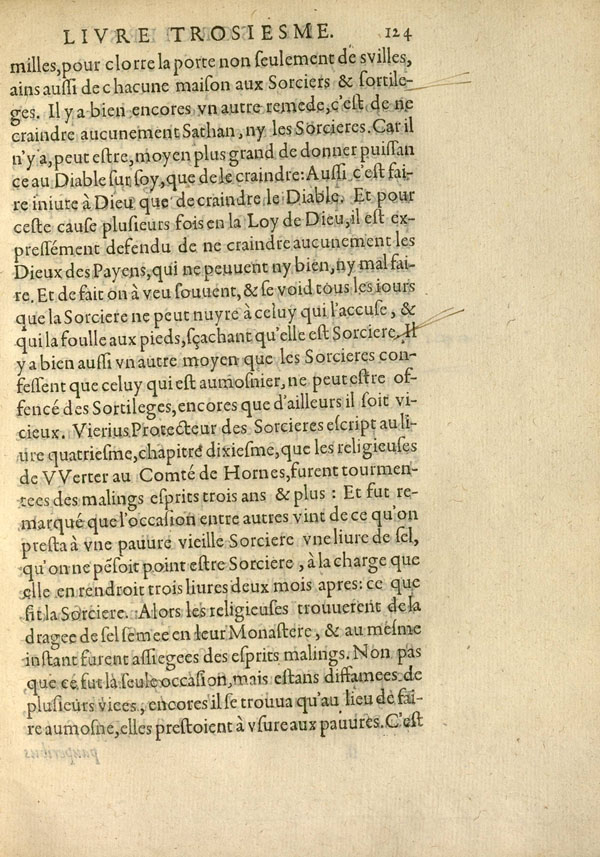 LIVRE TROSIESME. 124
milles, pour clorre la porte non ſeulement de svilles,
ains auſſi de chacune maiſon aux Sorciers & ſortile-
ges. Il y a bien encores vn autre remede, c'eſt de ne
craindre aucunement Sathan, ny les Sorcieres. Car il
n'y a, peut eſtre, moyen plus grand de donner puiſſan
ce au Diable ſur ſoy, que de le craindre: Auſſi c'eſt fai-
re iniute à Dieu que de craindre le Diable. Et pour
ceſte cauſe pluſieurs fois en la Loy de Dieu, il est ex-
preſſément defendu de ne craindre aucunement les
Dieux des Payens, qui ne peuuent ny bien, ny mal fai-
re. Et de fait on à veu ſouuent, & se void tous les iours
que la Sorciere ne peut nuyre à celuy qui l'accuse, &
qui la foulle aux pieds, sçachant qu'elle eſt Sorciere. Il
y a bien auſſi vn autre moyen que les Sorcieres con-
feſſent que celuy qui eſt aumoſnier, ne peut eſtre of-
fencé des Sortileges, encores que d'ailleurs il ſoit vi-
cieux. Vierius Protecteur des Sorcieres eſcript au li-
ure quatrieſme, chapitre dixieſme, que les religieuses
de VVerter au Comté de Hornes, furent tourmen-
tees des malings eſprits trois ans & plus : Et fut re-
marqué que l'occaſion entre autres vint de ce qu'on
preſta à vne pauure vieille Sorciere vne liure de ſel,
qu'on ne pẽſoit point eſtre Sorciere, à la charge que
elle en rendroit trois liures deux mois apres: ce que
fit la Sorciere. Alors les religieuſes trouuerent de la
dragee de ſel ſemee en leur Monaſtere, & au meſme
inſtant furent aſſiegees des eſprits malings. Non pas
que ce fut la ſeule occaſion, mais eſtans diffamees de
pluſieurs vices, encores il ſe trouua qu'au lieu de fai-
re aumoſne, elles preſtoient à vſure aux pauures. C'eſt